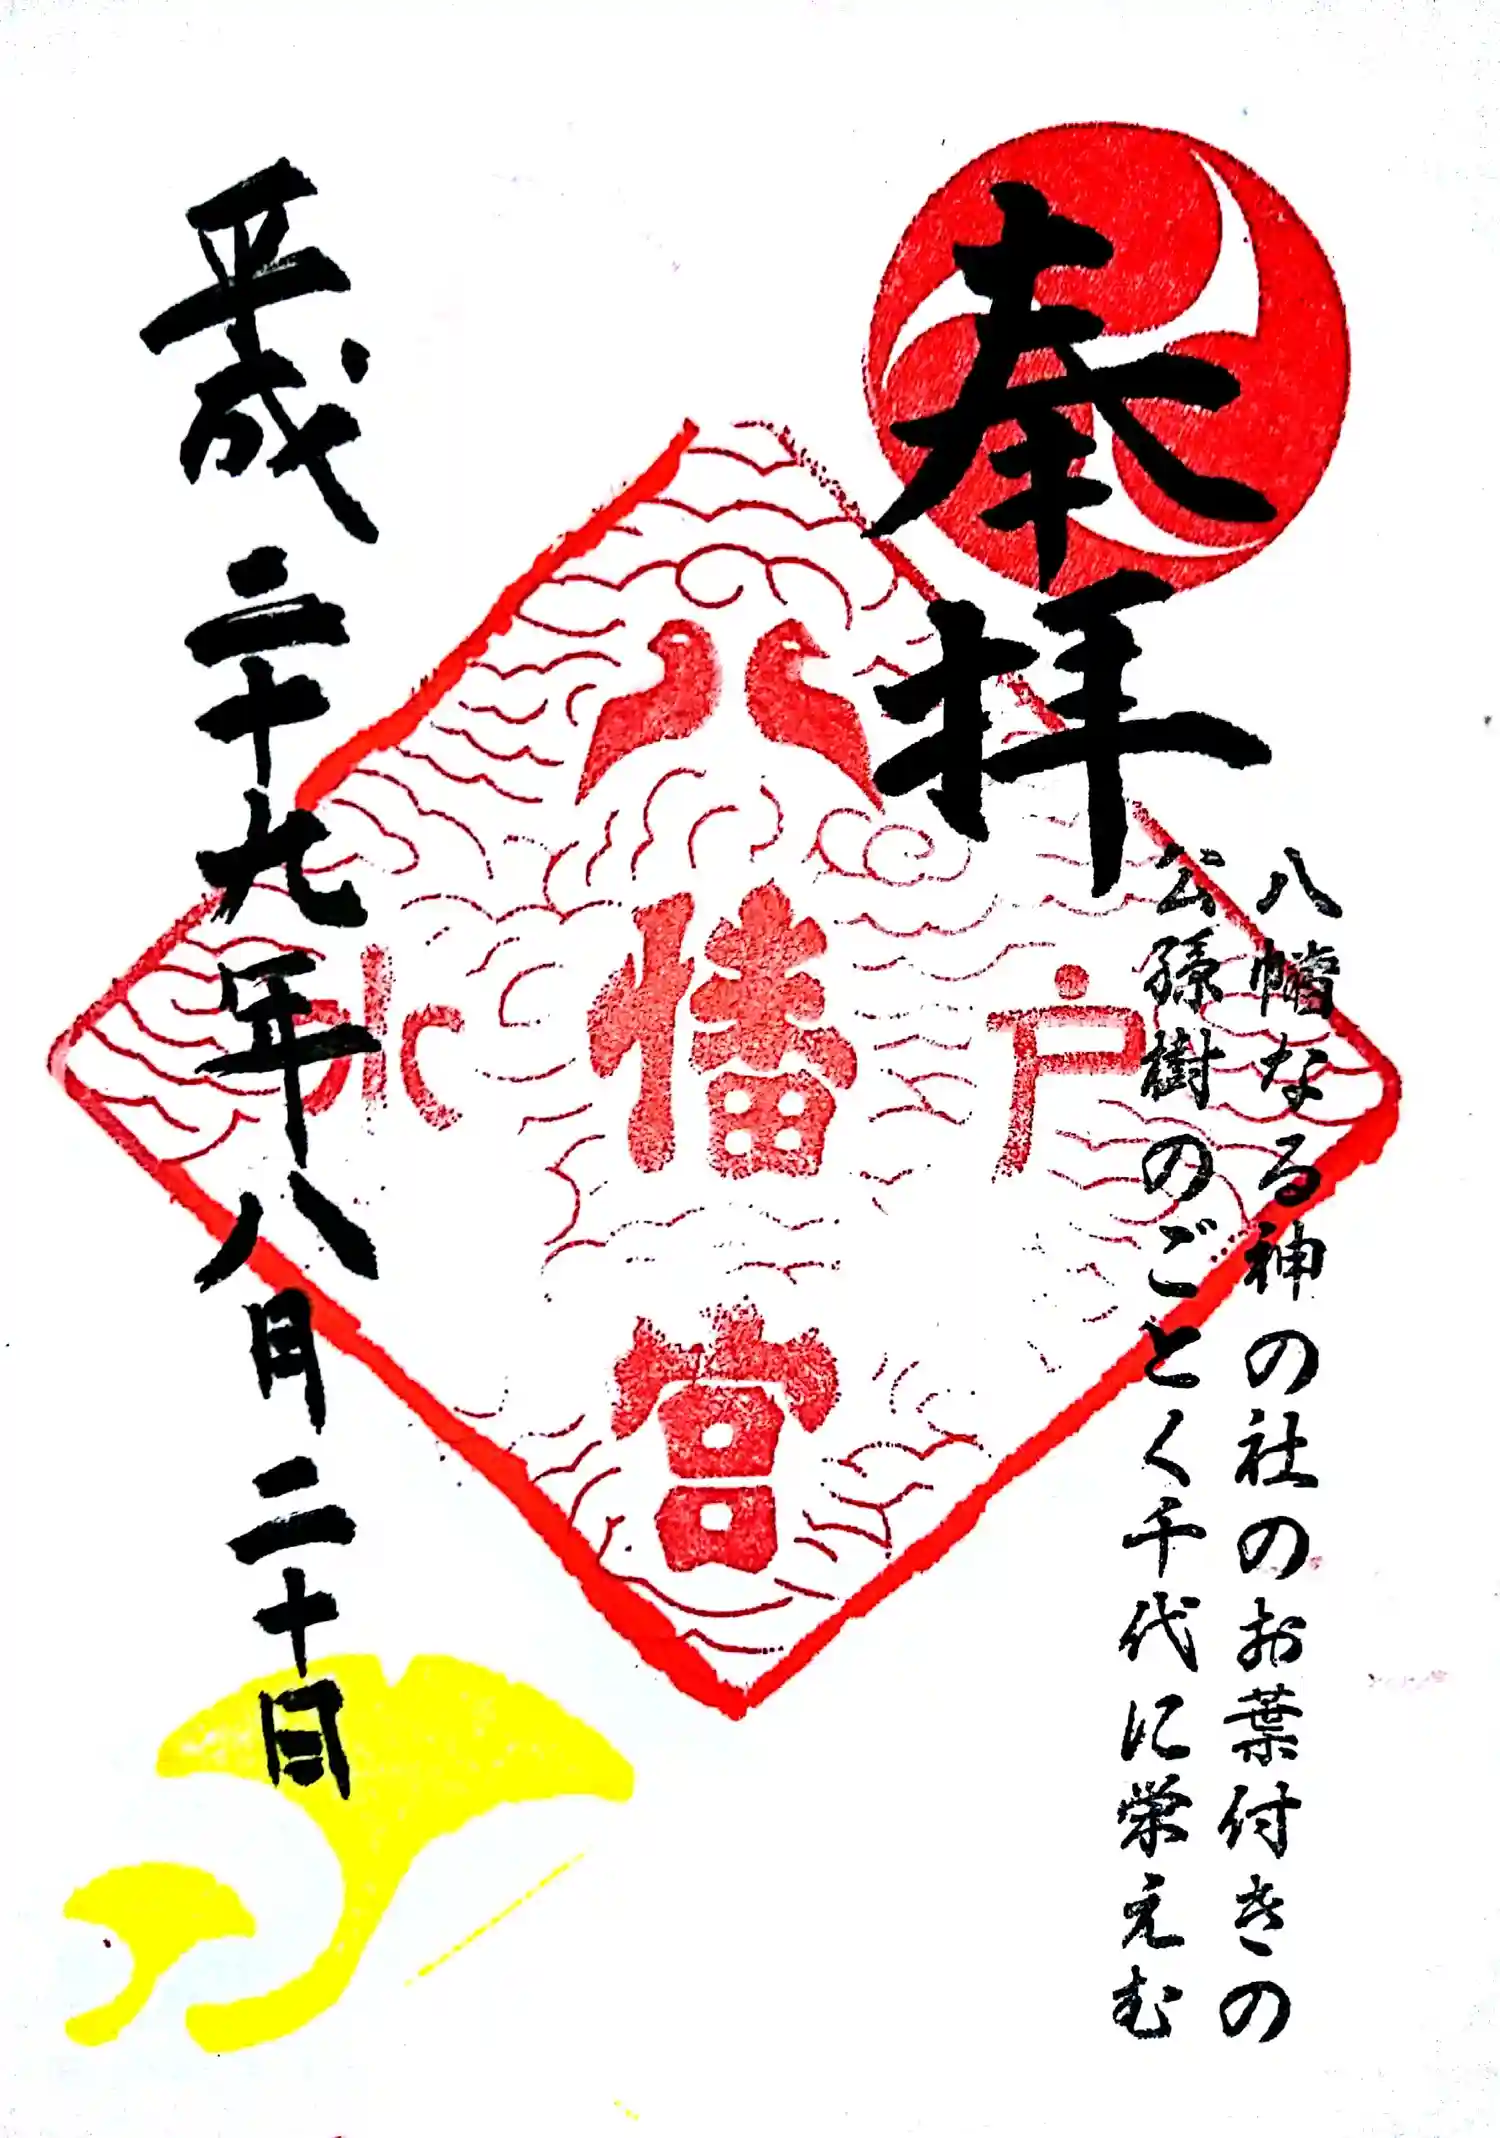 奉拝
八幡なる神の社のお葉付きの
公孫樹のごとく千代に栄えむ
水戸
八幡宮
平成二十九年八月二十日